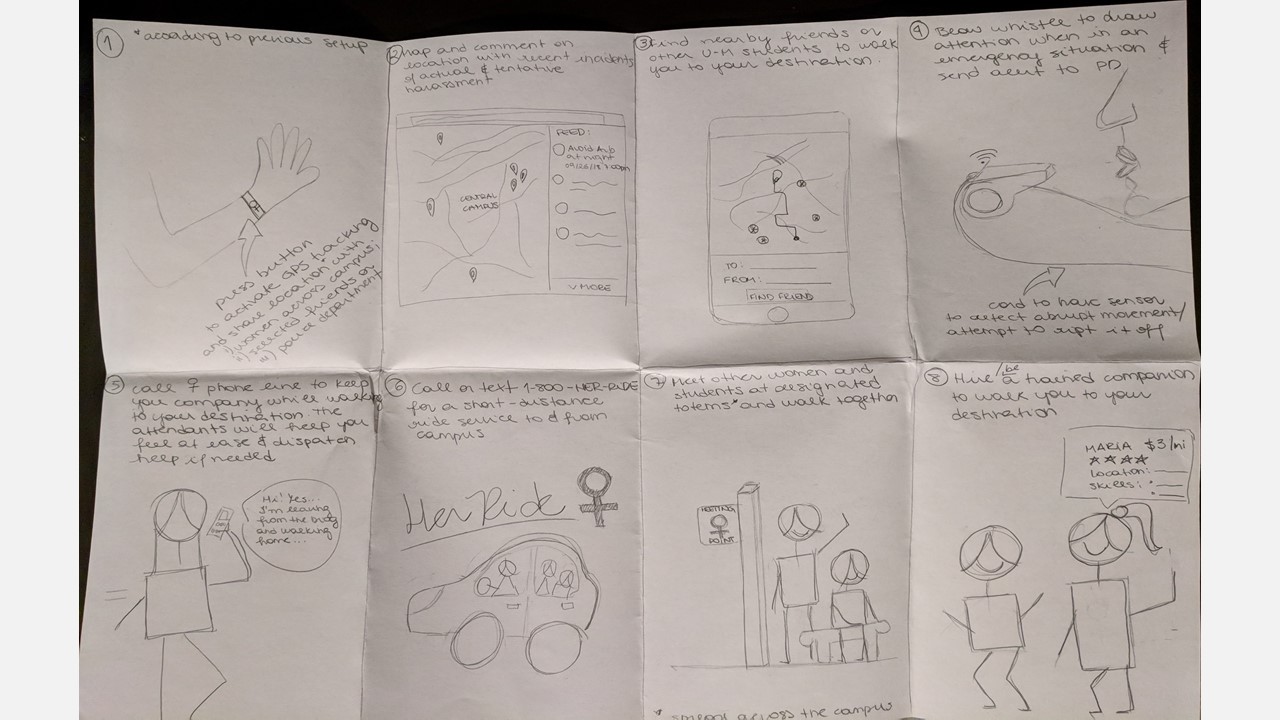 1 *according to previous setup
press button
to activate GPS tracking
and share location with
i) women across campus;
ii) selected friends or
iii) police department
2 map and comment on
location with recent incidents
of actual & tentative
harassment
CENTRAL
CAMPUS
FEED:
Avoid Arb
at night
V MORE
3 Find nearby friends or
other U-M students to walk
you to your destination.
TO:
FROM:
FIND FRIEND
4 Blow whistle to draw
attention when in an
emergency situation &
send alert to PD
cord to have sensor
to detect abrupt movement/
attempt to ript it off
5 call ♀ phone line to keep
you company while walking
to your destination. The
attendants will help you
feel at ease & dispatch
help if needed
Hi! Yes...
I'm leaving
from the bldg
and walking
home...
6 Call or text 1-800-HER-RIDE
for a short-distance
ride service to & from
campus
HerRide
7 Meet other women and
students at designated
totems* and walk together
MEETING
POINT
* spread across the campus
8 Hire/be a trained companion
to walk you to your
destination
MARIA $3/mi
★★★★
Location:
Skills: